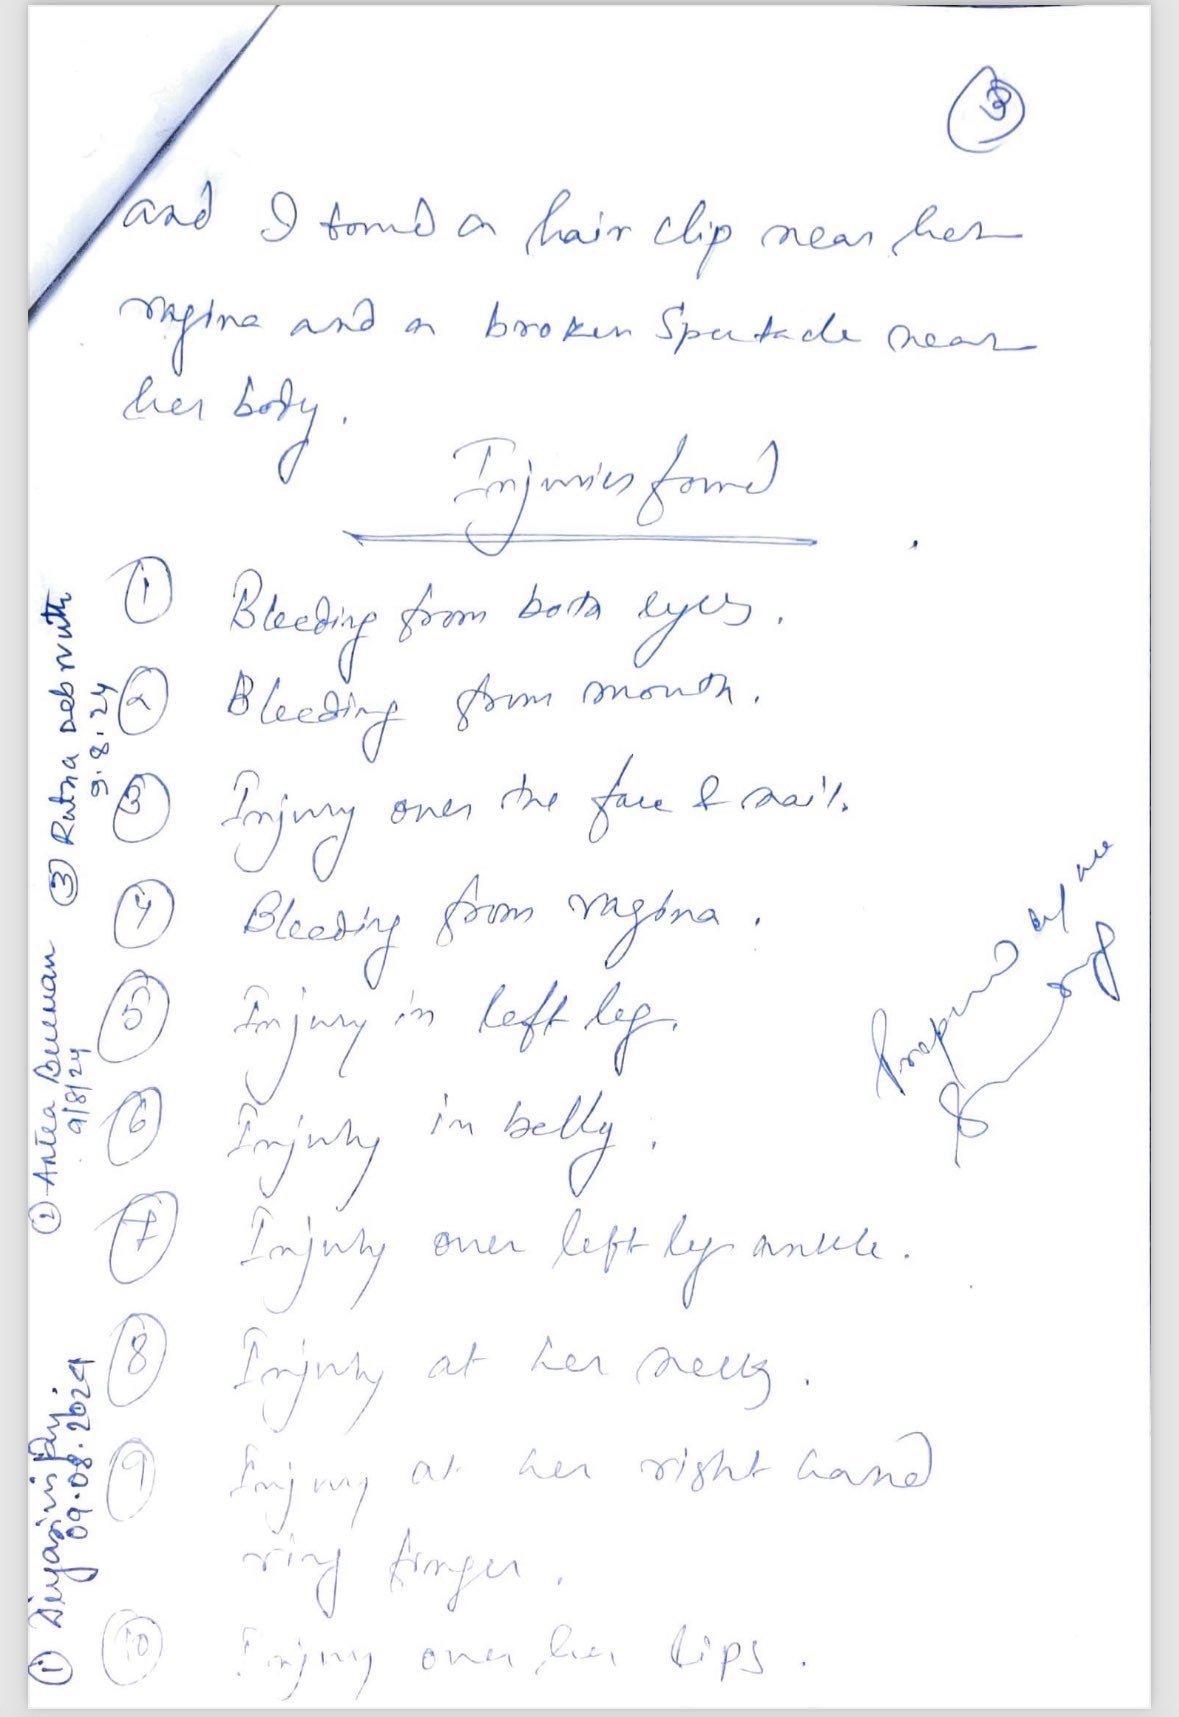 3
and I found a hair clip near her
vagina and a broken Spectacle near
her body.
Injuries found
1 Bleeding from both eyes.
2 Bleeding from mouth.
3 Injury over the face & nail.
4 Bleeding from vagina.
5 Injury in left leg.
6 Injury in belly.
7 Injury over left leg ankle.
8 Injury at her neck.
9 Injury at her right hand
ring finger.
10 Injury over her lips.
Prepared by me
1
09.08.2024
2 Antra Burman
9/8/24
3 Ratna Debnath
9.8.24